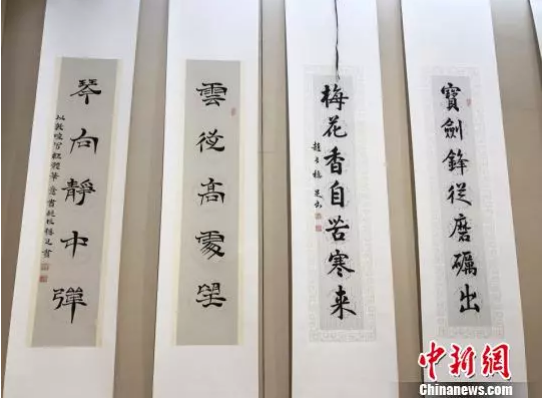 寶劍鋒從磨礪出
梅花香自苦寒来
雲從高處望
琴向靜中彈
中新網
Chinanews.com